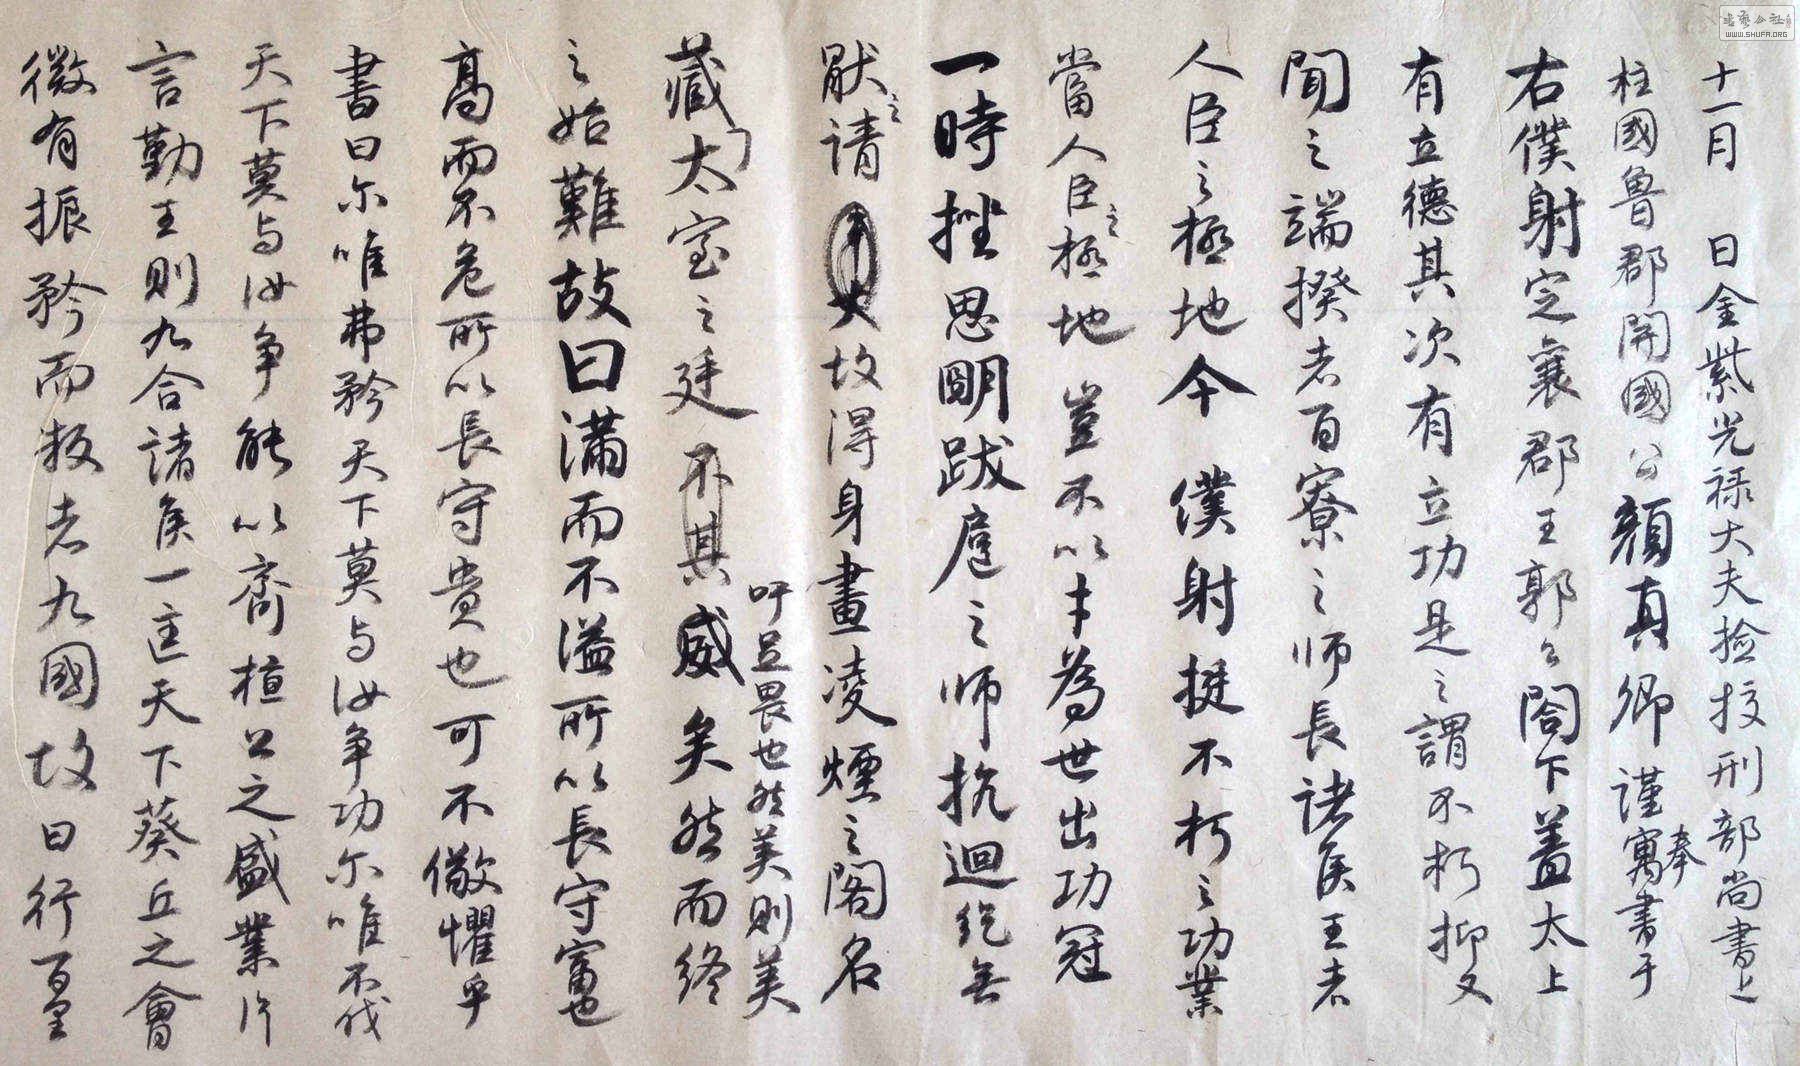 十一月 日金紫光禄大夫撿挍刑部尚書上
柱國魯郡開國公顔真卿謹奉寓書于
右僕射定襄郡王郭公閤下蓋太上
有立德其次有立功是之謂不朽抑又
聞之端揆者百寮之師長諸侯王者
人臣之極地今僕射挺不朽之功業
當人臣之極地豈不以才為世出功冠
一時挫思明跋扈之師抗迴紇無
猒之請故得身畫凌煙之閣名
藏太室之廷
吁足畏也然美則美
矣然而終
之始難故曰滿而不溢所以長守富也
高而不危所以長守貴也可不儆懼乎
書曰尔唯弗矜天下莫与汝争功尔唯不伐
天下莫与汝争能以齊桓公之盛業片
言勤王則九合諸侯一匡天下葵丘之會
微有振矜而叛者九國故曰行百里
書藝公社
WWW.SHUFA.ORG